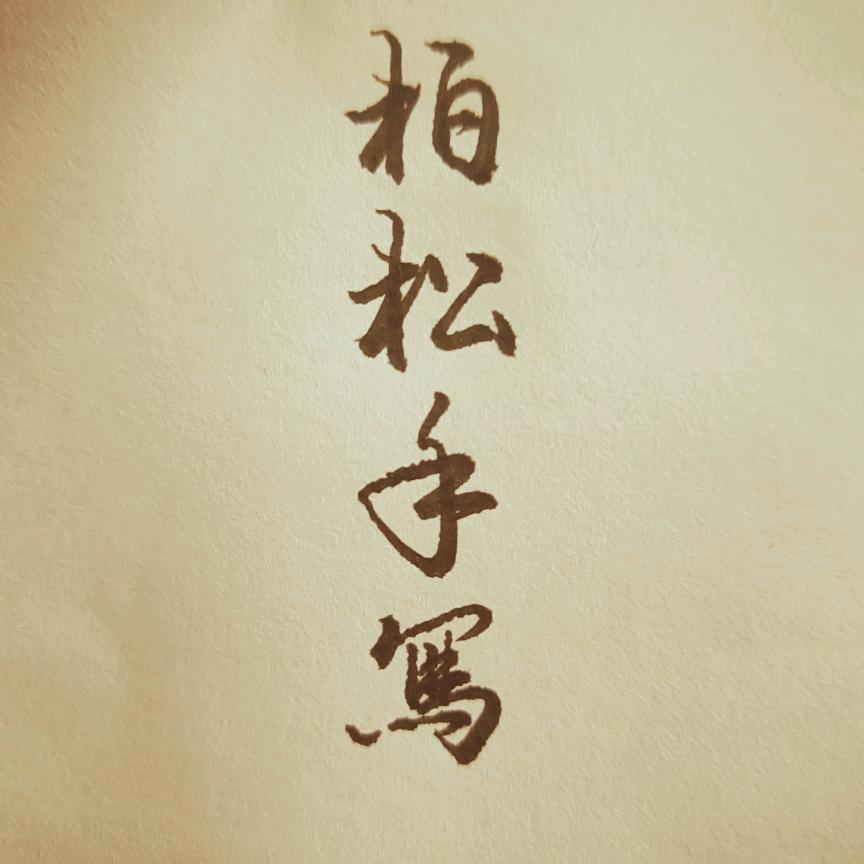 柏松手寫